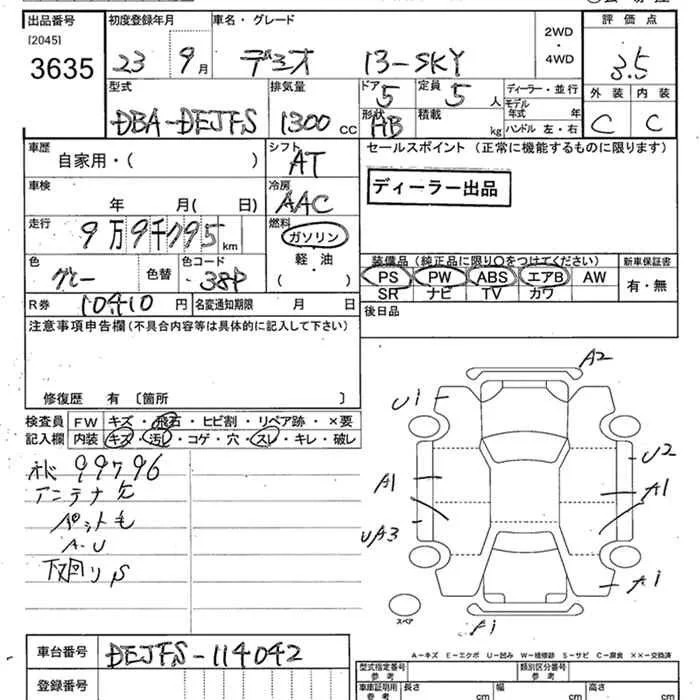 出品番号 初度登録年月 車名・グレード 2WD・4WD 評価点
[2045]
3635 23 9月 デミオ 13-SKY 3.5
型式 排気量 ドア 定員 ディーラー・並行 外装 内装
DBA-DEJFS 1300 CC 5 5 人 モデル年式 年 C C
形状 HB 積載 kg ハンドル 左・右
車歴 シフト セールスポイント (正常に機能するものに限ります)
自家用・( ) AT
車検 冷房 ディーラー出品
年 月( 日) AAC
走行 燃料
9万9千795 km ガソリン
色 色替 色コード 軽・油
グレー 38P ( )
装備品(純正品に限り○をつけてください) 新車保証書
PS PW ABS エアB AW 有・無
SR ナビ TV カワ
R券 10410 円 名変通知期限 月 日
後日品
注意事項申告欄(不具合内容等は具体的に記入して下さい)
修復歴 有 [箇所 ]
検査員 FW キズ・飛石・ヒビ割・リペア跡・×要
記入欄 内装 キズ・汚レ・コゲ・穴・スレ・キレ・破レ
99796
アンテナ欠
ペット毛
A-U
下廻りPS
A2
U1
U2
A1
A1
UA3
A1
スペア
A1
A-キズ E-エクボ U-凹み W-補修跡 S-サビ C-腐食 ××-交換済
車台番号 DEJFS-114042
型式指定番号 参考 類別区分番号 参考
登録番号 車庫証明用 参考 長さ cm 幅 cm 高さ cm